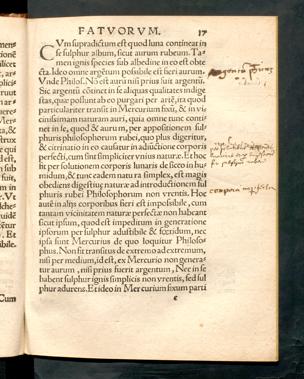 FATVORVM. 17
CVm supradictum est quod luna contineat in
se sulphur album, sicut aurum rubeum. Ta-
men ignis species sub albedine in eo est obte
cta. Ideo omne argẽtum possibile est fieri aurum.
Vnde Philos. Nõ est aurũ nisi prius fuit argentũ.
Sic argentũ cõtinet in se aliquas qualitates indige
stas, quae possunt ab eo purgari per artẽ, ita quod
particulariter transit in Mercurium fixũ, & in vi
cinissimam naturam auri, quia omne tunc conti-
net in se, quod & aurum, per appositionem sul-
phuris philosophorum rubei, quo plus digeritur,
& citrinatio in eo causatur in adiuctione corporis
perfecti, cum sint similiciter vnius naturæ. Et hoc
fit per solutionem corporis lunaris de sicco in hu-
midum, & tunc eadem natura simplex, est magis
obediens digestiuę naturæ ad introductionem sul
phuris rubei Philosophorum non vrentis. Hoc
autẽ in alijs corporibus fieri est impossibile, cum
tantam vicinitatem naturæ perfectæ non habeant
sicut ipsum, quod est impeditum in generatione
ipsorum per sulphur adustibile & fœtidum, nec
ipsa sunt Mercurius de quo loquitur Philoso
phus. Non fit transitus de extremo ad extremum,
nisi per medium, id est, ex Mercurio non genera-
tur aurum, nisi prius fuerit argentum, Nec in se
habent sulphur ignis simplicis non vrentis, sed sul
phur adurens. Et ideo in Mercurium fixum parti
c